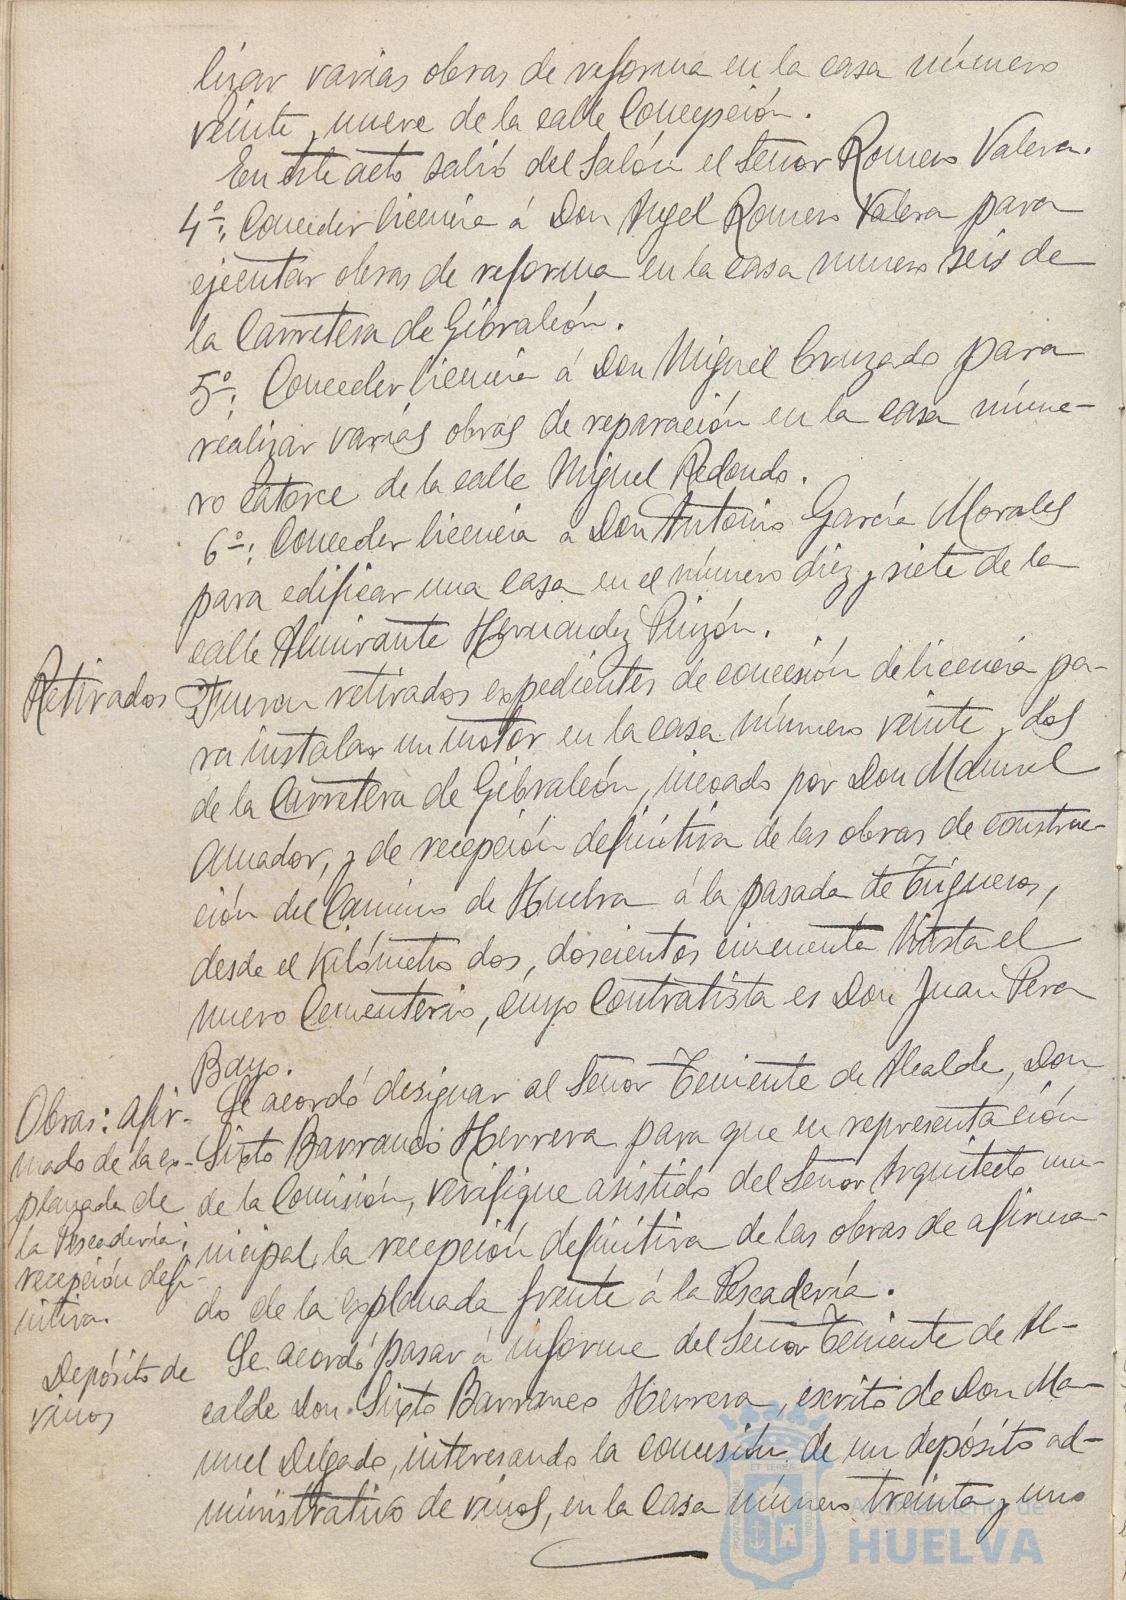 lizar varias obras de reforma en la casa número
veinte y nueve de la calle Concepción.
En este acto salió del Salón el Señor Romero Valera.
4º: Conceder licencia á Don Angel Romero Valera para
ejecutar obras de reforma en la casa numero seis de
la Carretera de Gibraleón.
5º: Conceder licencia á Don Miguel Cruzado para
realizar varias obras de reparación en la casa núme-
ro catorce de la calle Miguel Redondo.
6º: Conceder licencia a Don Antonio García Morales
para edificar una casa en el número diez y siete de la
calle Almirante Hernandez Pinzón.
Retirados
Fueron retirados expedientes de concesión de licencia pa-
ra instalar un motor en la casa número veinte y dos
de la Carretera de Gibraleón, incoado por Don Manuel
Amador, y de recepción definitiva de las obras de construc-
ción del Camino de Huelva á la pasada de Trigueros,
desde el Kilómetro dos, doscientos cincuenta hasta el
nuevo Cementerio, cuyo Contratista es Don Juan Pera
Bayo.
Obras: afir-
mado de la ex-
planada de
la Pescadería;
recepción defi-
nitiva.
Se acordó designar al Señor Teniente de Alcalde, Don
Sixto Barranco Herrera para que en representación
de la Comisión, verifique asistido del Señor Arquitecto mu-
nicipal, la recepción definitiva de las obras de afirma-
do de la explanada frente á la Pescadería.
Depósito de
vinos
Se acordó pasar á informe del Señor Teniente de Al-
calde Don Sixto Barranco Herrera, escrito de Don Ma-
nuel Delgado, interesando la concesión de un depósito ad-
ministrativo de vinos, en la casa número treinta y uno
Ayuntamiento de
HUELVA